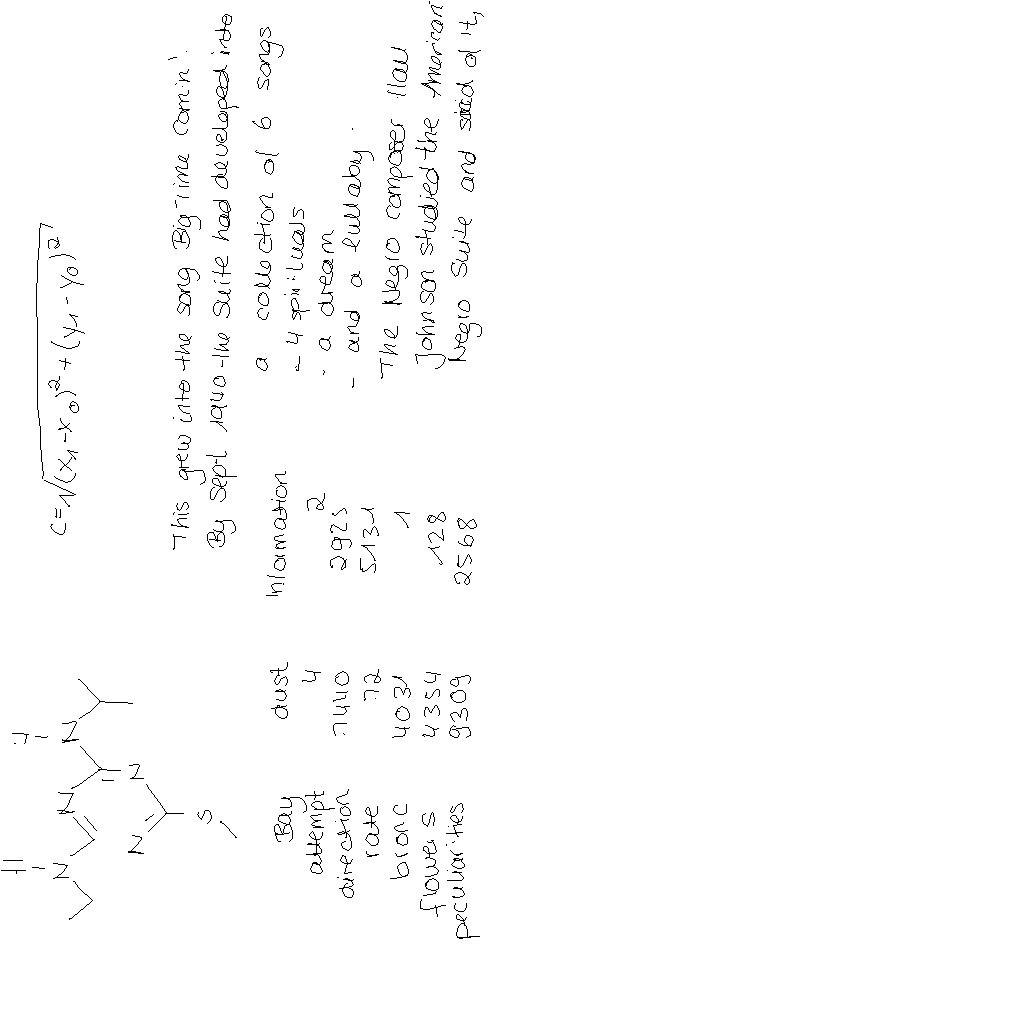 c=√(x₁-x₀)²+(y₁-y₀)²
This grew into the song Big Time Comin'.
By Sept 1940 the Suite had developed into
a collection of 6 songs
- 4 spirituals
- a dream
- and a lullaby.
The Negro composer Hall
Johnson studied the American
Negro Suite and said of it,
H H
N N N
N N
S
Bay dust Information
attempt 4 2
direction 7440 2925
rate 72 5131
bronc 4031 1
flowers 4354 128
peculiarities 9309 2568